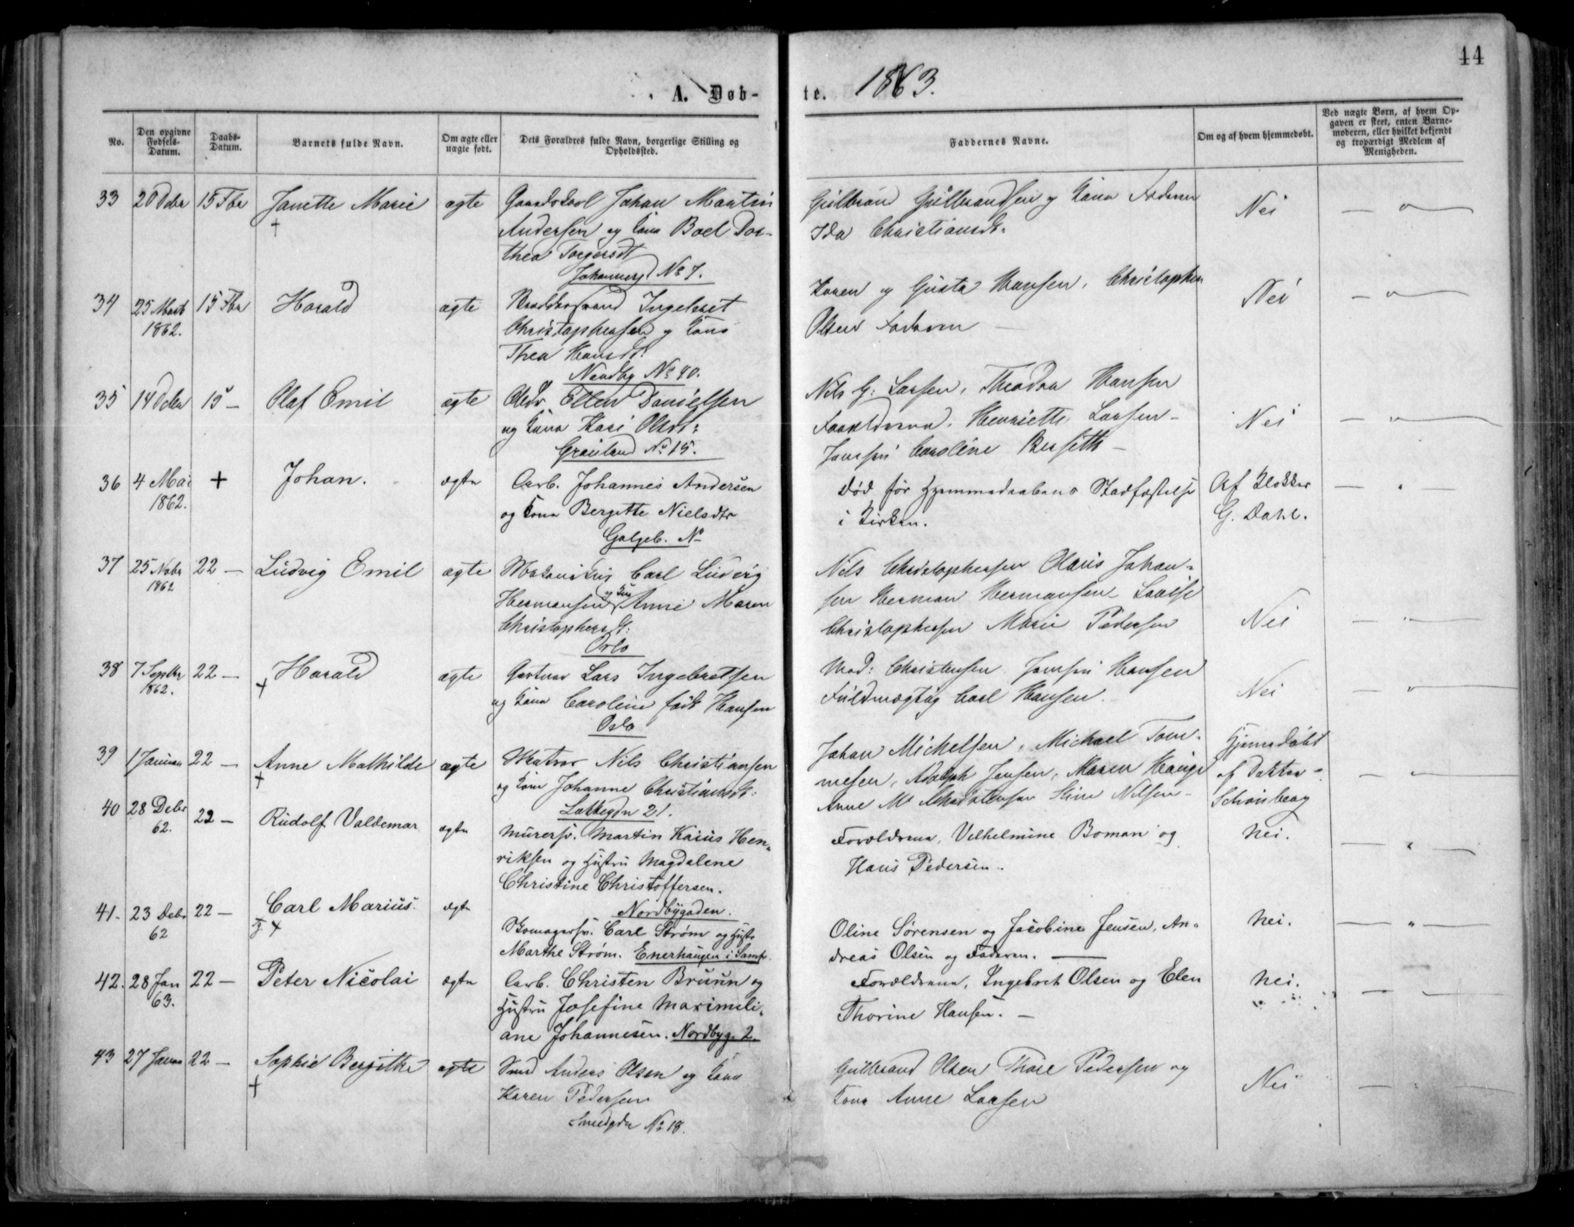 44
A. Døb-te. 1863.
No.
Den opgivne Fødsels-Datum.
Daabs-Datum.
Barnets fulde Navn.
Om ægte eller uægte født.
Dets Forældres fulde Navn, borgerlige Stilling og Opholdssted.
Faddernes Navne.
Om og af hvem hjemmedøbt.
Ved uægte Børn, af hvem Opgaven er skeet, enten Barnemoderen, eller hvilket bekjendt og troværdigt Medlem af Menigheden.
33 20 Debr 15 Fbr Janette Marie ægte Johan Martin
Andersen og Kone Boel Dor-
thea Torgersdt
No 7.
Gulbran Gulbrandsen og Kone Faderen
Ida Christiansdt.
Nei — " —
34 25 1862. 15 Fbr Harald ægte Ingebret
Christophersen og Kone
Thea Hansdt.
No 40.
Karen og Gusta Hansen, Christopher
Olsen Faderen —
Nei — " —
35 14 Debr 15 — Olaf Emil ægte Ellen Danielsen
og Kone Kari Olsdt:
Grønland No 15.
Nils G. Larsen, Theodor Hansen
Forældrene, Henriette Larsen —
Caroline Berseth —
Nei — " —
36 4 Mai 1862. + Johan. ægte Arb. Johannes Andersen
og Kone Bergitte Nielsdtr
Galgeb. No
Død før Hjemmedaabens Stadfæstelse
i Kirken.
Af Klokker
G. Dahl.
— " —
37 25 Nobr 1862 22 — Ludvig Emil ægte Carl Ludvig
Hermansen og Kone Anne Maren
Christophersdt:
Oslo
Nils Christophersen Olaus Johan-
sen Herman Hermansen Lovise
Christophersen Marie Pedersen
Nei — " —
38 7 Septbr 1862. 22 — Harald ægte Gartner Lars Ingebretsen
og Kone Caroline født Hansen
Oslo
Mad: Christensen Hansen
Fuldmægtig Carl Hansen.
Nei — " —
39 1 Januar 22 — Anne Mathilde ægte Nils Christiansen
og Kone Johanne Christiansdt:
Lakkegdn 21.
Johan Michelsen, Michael Tom-
mesen, Adolph Jensen, Maren Hauge
Anne M. Christensen Nilsen —
Hjemmedøbt
af Doktor
Schønberg
— " —
40 28 Debr 62. 22 — Rudolf Valdemar ægte Murersv. Martin Kaius Hen-
riksen og Hustru Magdalene
Christine Christoffersen.
Nordbygaden.
Forældrene, Vilhelmine Boman og
Hans Pedersen.
Nei. — " —
41. 23 Debr 62 22 — Carl Marius. ægte Skomagersv. Carl Strøm og Hustr.
Marthe Strøm. Enerhaugen i Samf.
Oline Sørensen og Jacobine Jensen, An-
dreas Olsen og Faderen. —
Nei. — " —
42. 28 Jan 63. 22 — Peter Nicolai ægte Arb. Christen Bruun og
Hustru Josefine Maximili-
ane Johannesen. Nordbyg. 2.
Forældrene, Ingebret Olsen og Elen
Thorine Hansen. —
Nei. — " —
43 27 Januar 22 — Sophie Bergithe ægte Smed Anders Olsen og Kone
Karen Pedersen
Smedgdn No 18.
Gulbrand Olsen Thore Pedersen og
Kone Anne Larsen
Nei — " —